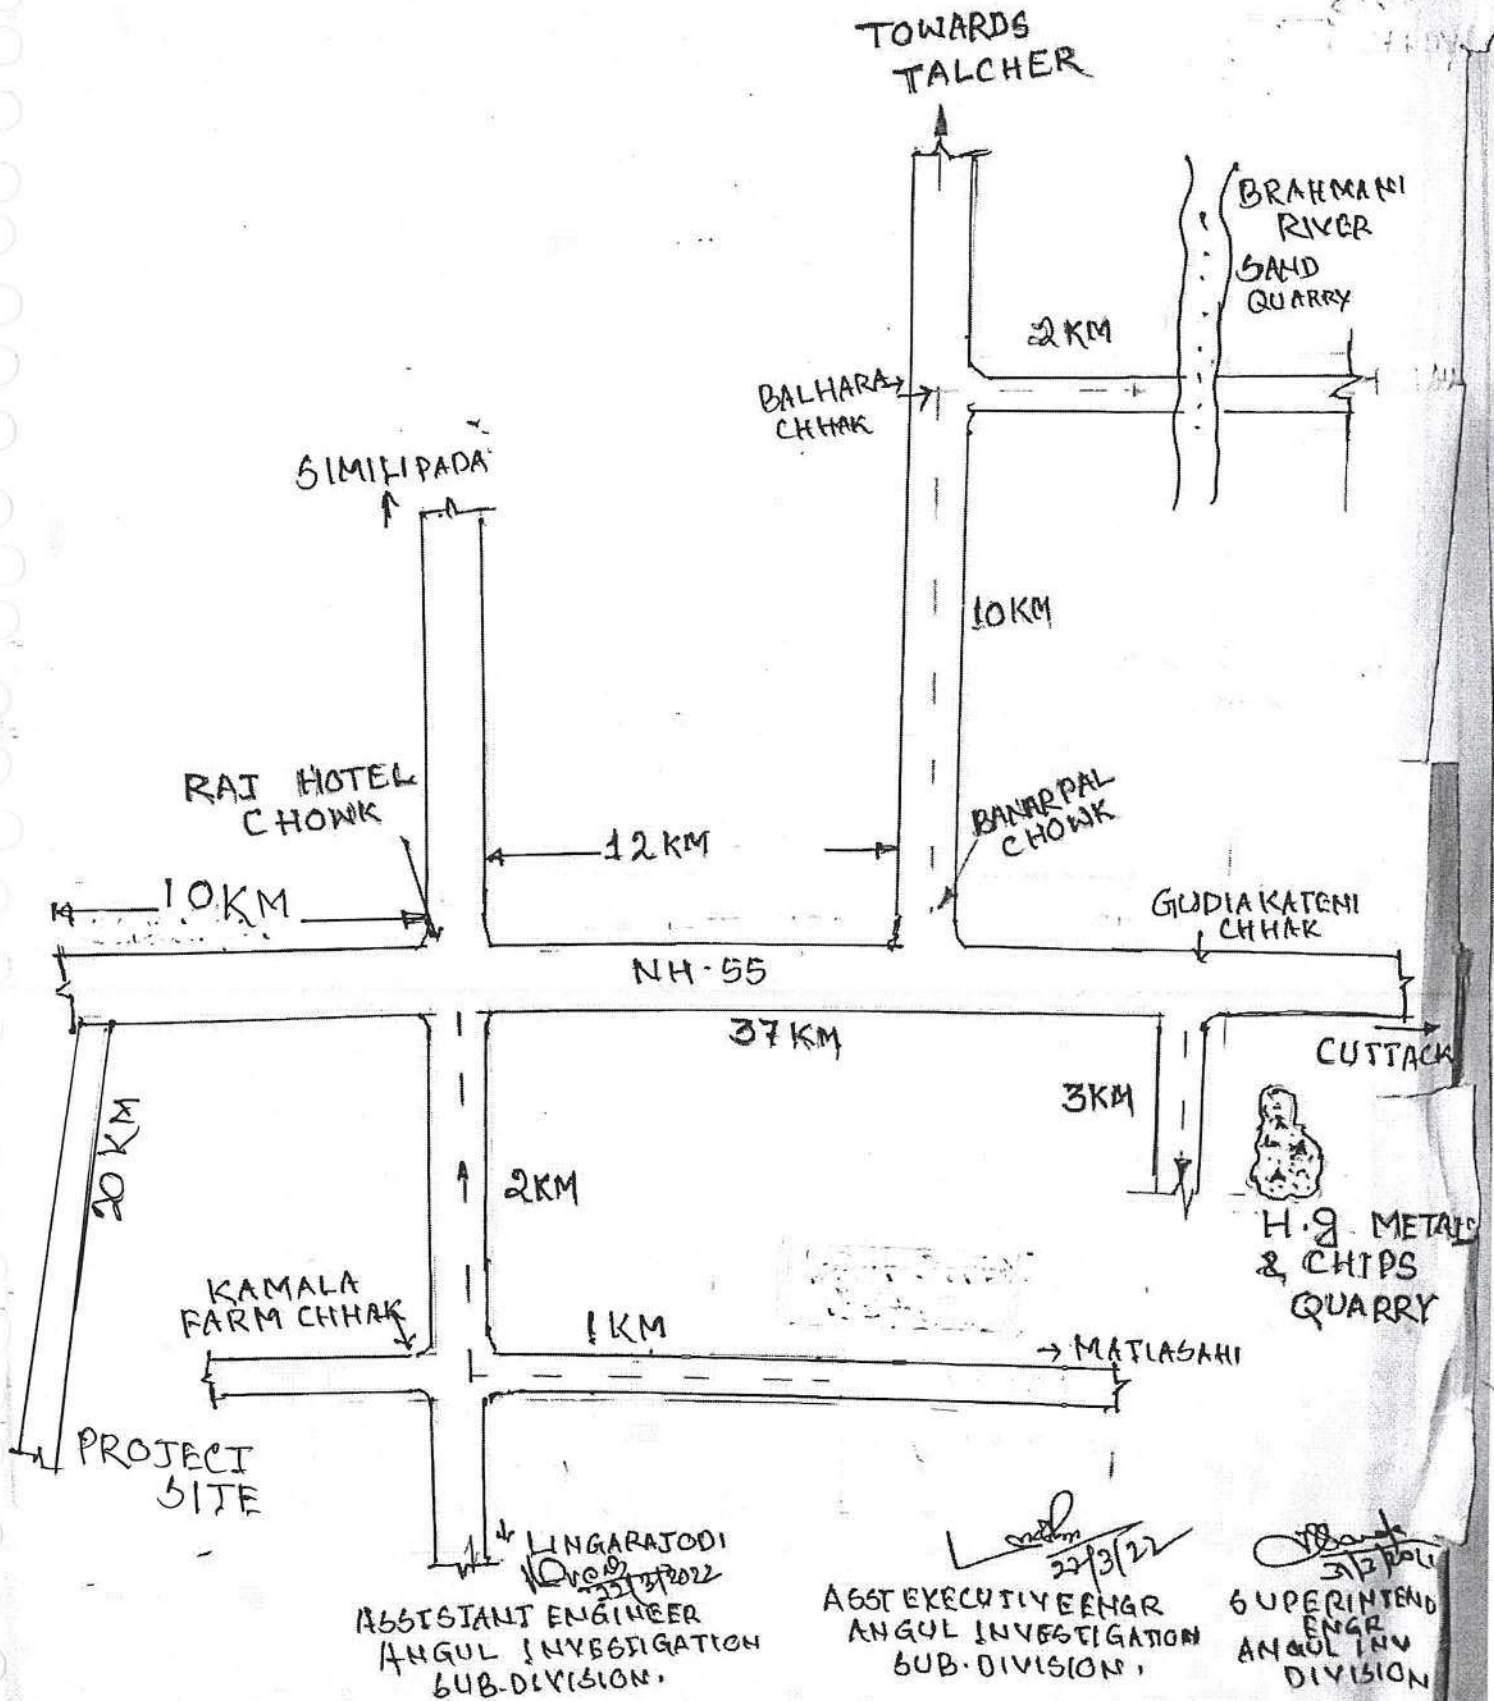 TOWARDS
TALCHER
BRAHMANI
RIVER
SAND
QUARRY
2 KM
BALHARA
CHHAK
SIMILIPADA
10 KM
RAJ HOTEL
CHOWK
12 KM
BANARPAL
CHOWK
10 KM
GUDIAKATENI
CHHAK
NH-55
37 KM
CUTTACK
3KM
20 KM
2KM
H.g. METALS
& CHIPS
QUARRY
KAMALA
FARM CHHAK
1 KM
MATIASAHI
PROJECT
SITE
LINGARAJODI
22/3/2022
ASSISTANT ENGINEER
ANGUL INVESTIGATION
SUB-DIVISION.
22/3/22
ASST EXECUTIVE ENGR
ANGUL INVESTIGATION
SUB-DIVISION.
SUPERINTEND
ENGR
ANGUL INV
DIVISION